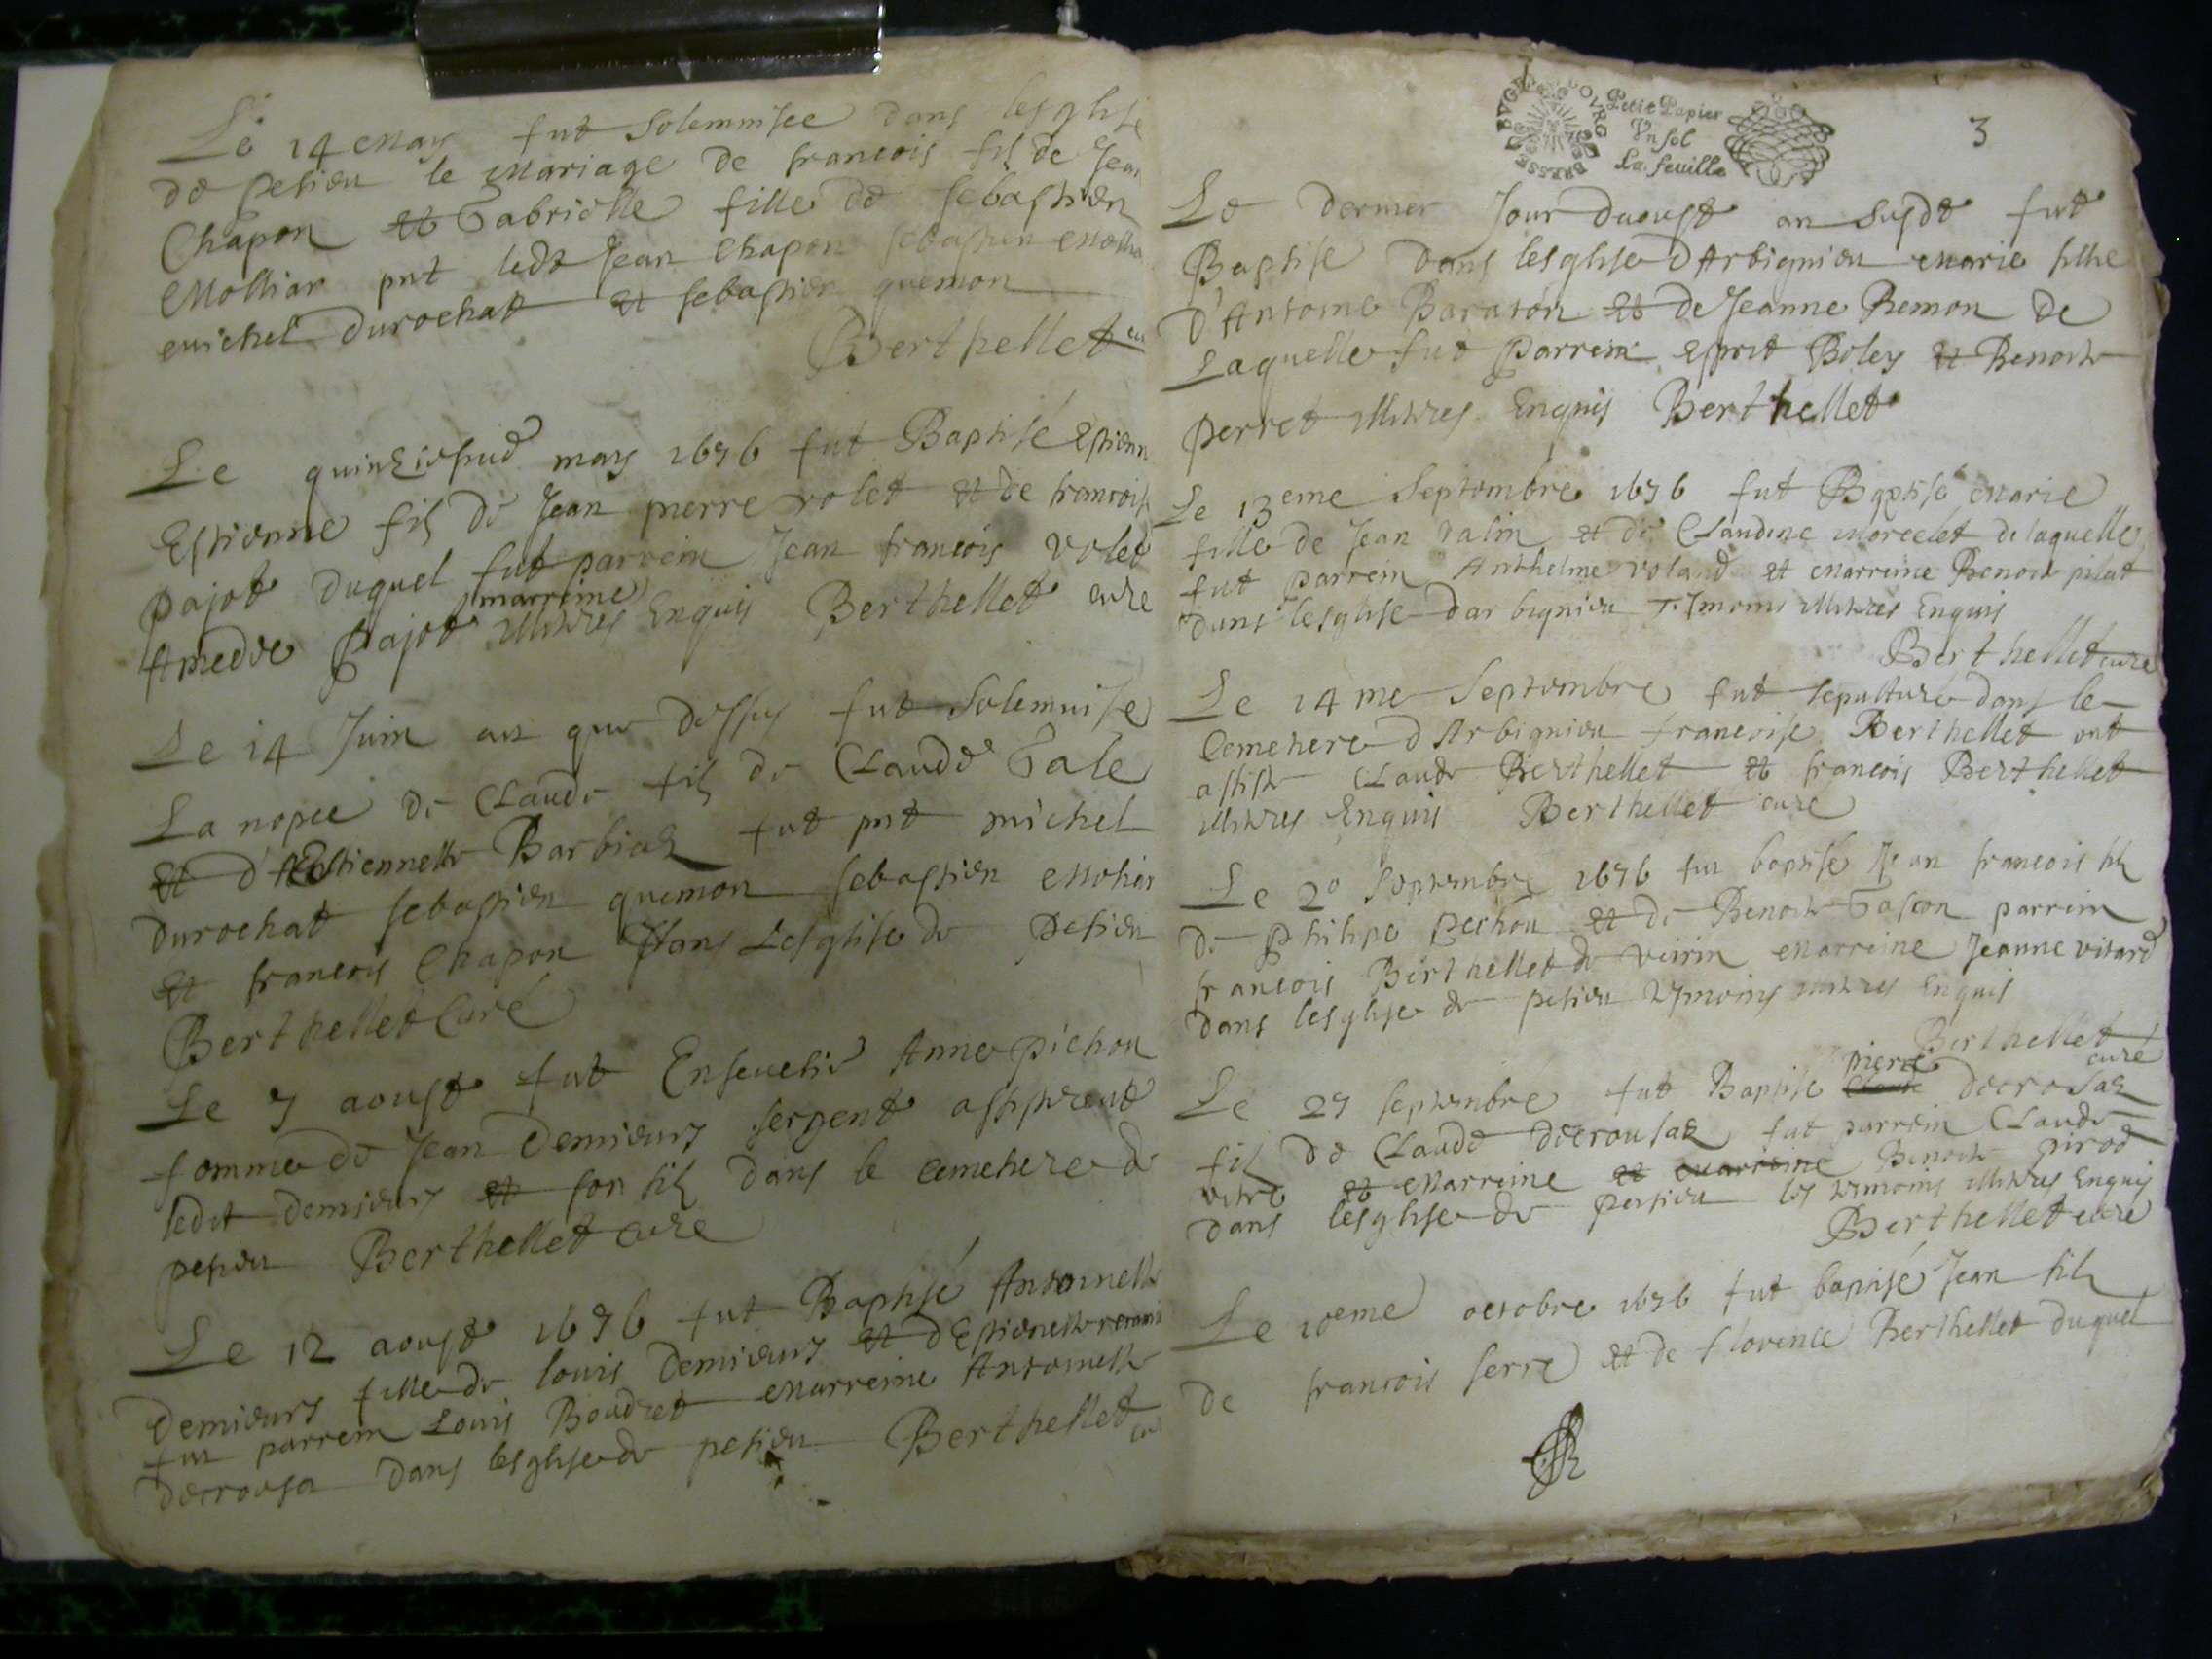 Le 14 May fut solemnisee dans lesglise
de pesieu le Mariage de francois fils de Jean
Chapon et Gabrielle fille de sebastien
Mollian pnt ledt Jean Chapon sebastien
michel durochat et sebastien quemon
Berthellet
Le mars 1676 fut Baptisé
Estienne fils de Jean pierre volet et de francoise
pajot duquel fut parrein Jean francois volet
marreine
Amedee pajot illitres Enquis Berthellet cure
Le 14 Juin an que dessus fut solemnise
La nopce de Claude fils de Claude Gale
et d'Estiennette Barbier fut pnt michel
durochat sebastien quemon sebastien Molian
et francois Chapon dans Lesglise de pesieu
Berthellet Curé
Le 7 aoust fut Ensevelie Anne pichon
femme de Jean Demieurs sergent assisterent
ledit Demieurs et son fils dans le cemetiere de
pesieu Berthellet cure
Le 12 aoust 1676 fut Baptisé Antoinette
Demieurs fille de louis Demieurs et dEstiennette
fut parrein Louis Boudret Marreine Antoinette
decrousa dans lesglise de pesieu Berthellet
Petit Papier
Un sol
La feuille
3
Le dernier Jour daoust an susdt fut
Baptise dans lesglise dArbignieu Marie fille
d'Antoine Baraton et de Jeanne Remon de
Laquelle fut Parrein esprit Boley et Benoite
perret illitres Enquis Berthellet
Le 13eme Septembre 1676 fut Baptisé Marie
fille de Jean valin et de Claudine Morcelet de laquelle
fut parrein Anthelme voland et Marreine Benoite pilat
dans lesglise darbignieu Tesmoins illitres Enquis
Berthellet cure
Le 14me Septembre fut sepulturé dans le
Cemetiere dArbignieu francoise Berthellet ont
assiste Claude Berthellet et francois Berthellet
illitres Enquis Berthellet cure
Le 20 Septembre 1676 fut baptisé Jean francois fils
de philipe pechou et de Benoite Gascon parrein
francois Berthellet de veirin Marreine Jeanne vitard
dans lesglise de pesieu tesmoins illitres Enquis
Berthellet
curé
pierre
Le 27 septembre fut Baptise decrosaz
fils de Claude decrousaz fut parrein Claude
vitre et Marreine et Marreine Benoite pirod
dans lesglise de pesieu les tesmoins illitres Enquis
Berthellet cure
Le 10eme octobre 1676 fut baptisé Jean fils
de francois serre et de florence Berthellet duquel